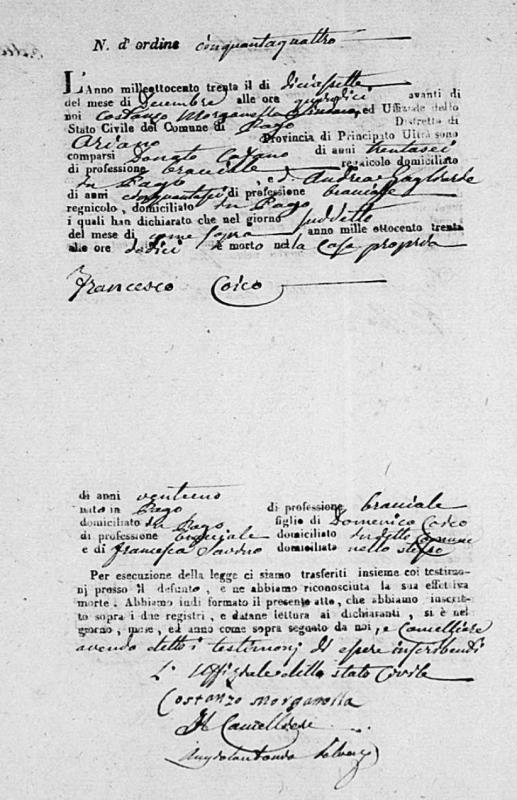 N. d'ordine cinquantaquattro
L'Anno milleottocento trenta il dì diciasette
del mese di Decembre alle ore quindici avanti di
noi Costanzo Morganella Sindaco, ed Uffiziale dello
Stato Civile del Comune di Pago Distretto di
Ariano Provincia di Principato Ultra sono
comparsi Donato di anni trentasei
di professione bracciale regnicolo domiciliato
in Pago e di Andrea
di anni di professione bracciale
regnicolo, domiciliato in Pago
i quali han dichiarato che nel giorno suddetto
del mese di come sopra anno mille ottocento trenta
alle ore dodici è morto nella Casa propria
Francesco Coico
di anni ventuno
nato in Pago di professione bracciale
domiciliato in Pago figlio di Domenico Coico
di professione bracciale domiciliato in detto Comune
e di Francesca Savino domiciliata nello stesso
Per esecuzione della legge ci siamo trasferiti insieme coi testimo-
nj presso il defunto, e ne abbiamo riconosciuta la sua effettiva
morte. Abbiamo indi formato il presente atto, che abbiamo inscrit-
to sopra i due registri, e datane lettura ai dichiaranti, si è nel
giorno, mese, ed anno come sopra segnato da noi, e Cancelliere
avendo detto i testimonj di essere inscribendi
L'Uffiziale dello stato Civile
Costanzo Morganella
Il Cancelliere